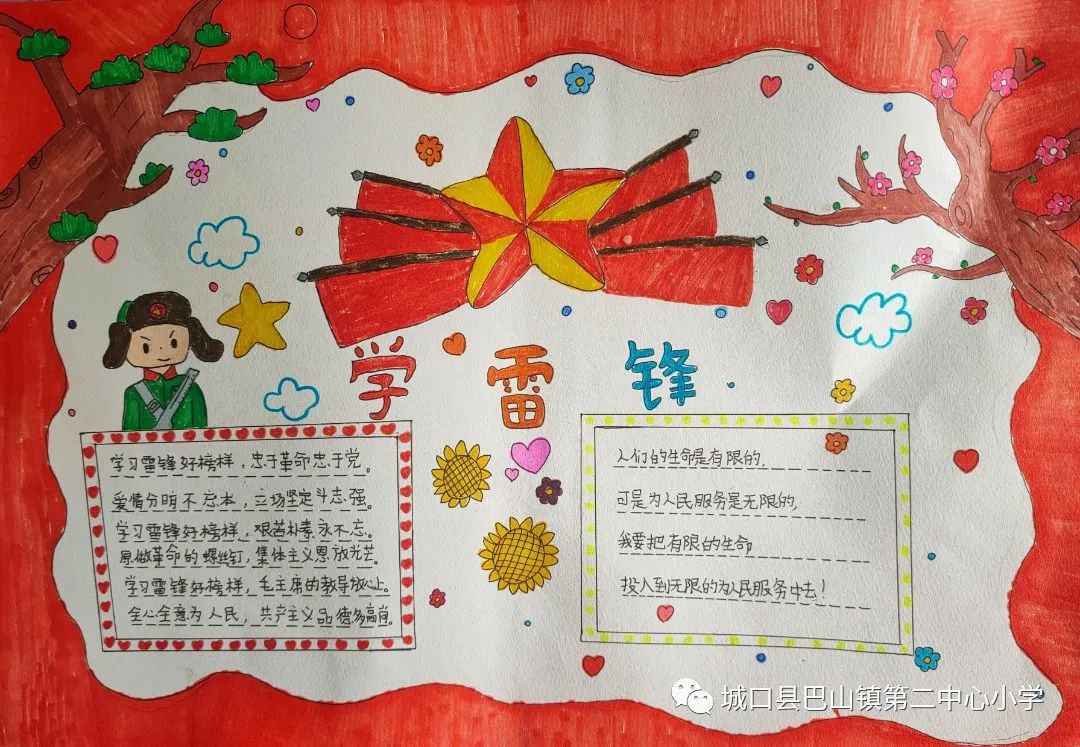 学雷锋
学习雷锋好榜样，忠于革命忠于党。
爱憎分明不忘本，立场坚定斗志强。
学习雷锋好榜样，艰苦朴素永不忘。
愿做革命的螺丝钉，集体主义思放光芒。
学习雷锋好榜样，毛主席的教导放心上。
全心全意为人民，共产主义品德多高尚。
人们的生命是有限的，
可是为人民服务是无限的，
我要把有限的生命
投入到无限的为人民服务中去！
城口县巴山镇第二中心小学